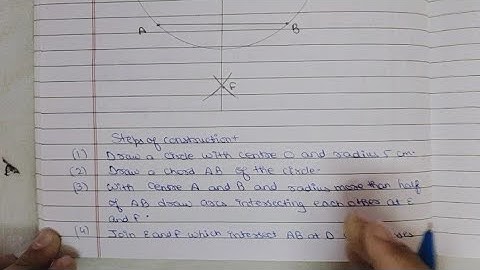 A
B
F
Steps of construction
(1) Draw a circle with centre O and radius 5 cm.
(2) Draw a chord AB of the circle.
(3) With centre A and B and radius more than half
of AB draw arcs intersecting each other at E
and F.
(4) Join E and F which intersect AB at D